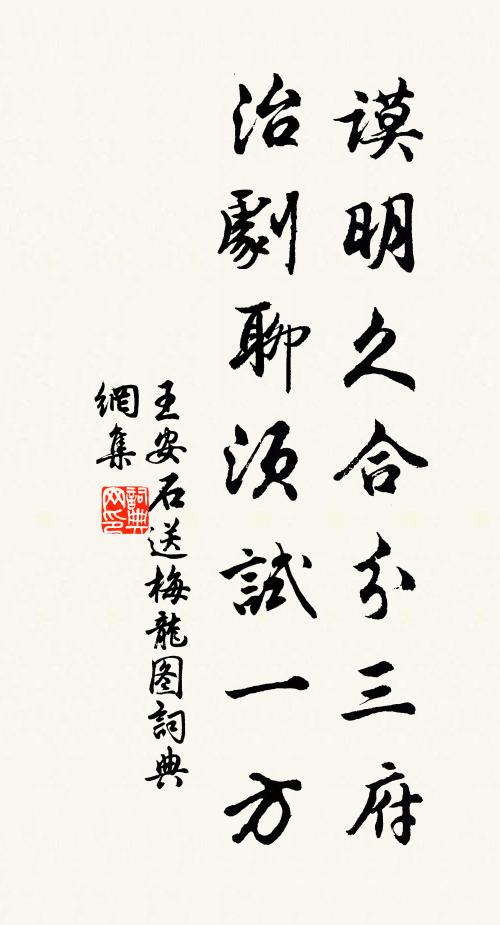 謨明久合分三府
治劇聊須試一方
王安石送梅龍图詞典
網集
詞典
网印